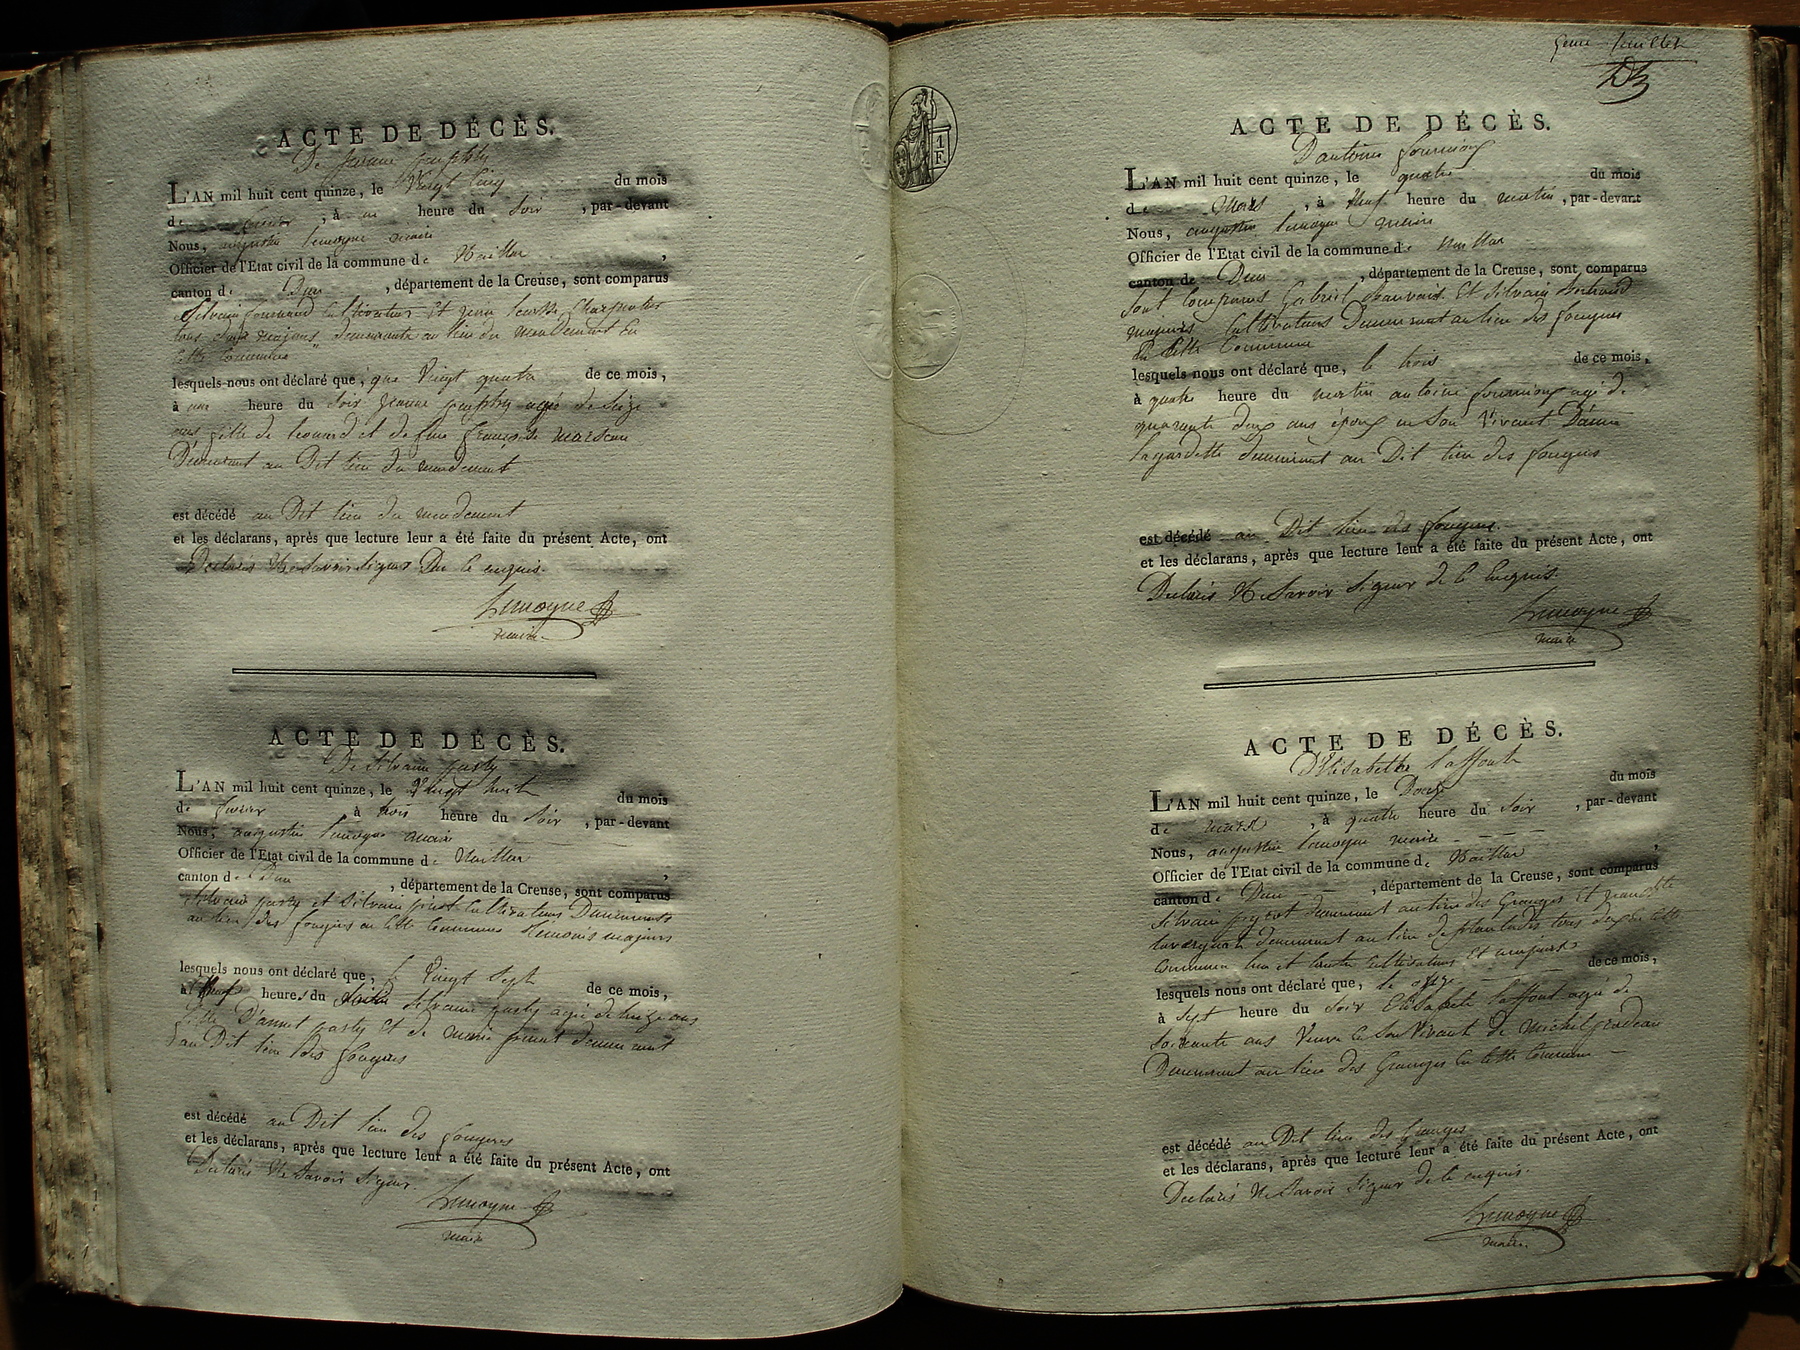 ACTE DE DÉCÈS.
De jeanne
L'AN mil huit cent quinze, le Vingt Cinq du mois
de , à une heure du Soir, par-devant
Nous, augustin Lemoyne maire
Officier de l'Etat civil de la commune de Naillat,
canton de Dun, département de la Creuse, sont comparus
Silvain Cultivateur Et
tous deux majeurs demeurants au lieu du mondement En
Cette Commune
lesquels nous ont déclaré que, que Vingt quatre de ce mois,
à une heure du Soir jeanne agée de Seize
ans fille de Leonard et de fue françoise
Demeurant au Dit lieu du mondement
est décédé au Dit lieu du mondement
et les déclarans, après que lecture leur a été faite du présent Acte, ont
Declarés Ne Savoir Signer De Ce enquis.
Lemoyne
maire
ACTE DE DÉCÈS.
De Silvaine party
L'AN mil huit cent quinze, le Vingt huit du mois
de fevrier à trois heure du Soir, par-devant
Nous, augustin Lemoyne maire
Officier de l'Etat civil de la commune de Naillat,
canton de Dun, département de la Creuse, sont comparus
Silvain party et Silvain Cultivateurs Demeurants
au lieu des fougeres en Cette Commune majeurs
lesquels nous ont déclaré que, le Vingt Sept de ce mois,
à Neuf heures du Silvaine party agée de ans
fille D'annet party Et de marie demeurant
au Dit lieu des fougeres
est décédé au Dit lieu des fougeres
et les déclarans, après que lecture leur a été faite du présent Acte, ont
Declarés Ne Savoir Signer.
Lemoyne
maire
1
F.
5eme feuillet
ACTE DE DÉCÈS.
D'antoine
L'AN mil huit cent quinze, le quatre du mois
de Mars, à Neuf heure du matin, par-devant
Nous, augustin Lemoyne maire
Officier de l'Etat civil de la commune de Naillat
canton de Dun, département de la Creuse, sont comparus
Sont Comparus Gabriel Beauvais Et Silvain
majeurs Cultivateurs Demeurant au lieu des fougeres
En Cette Commune
lesquels nous ont déclaré que, le trois de ce mois,
à quatre heure du matin antoine agé de
quarante deux ans époux en Son Vivant D'anne
Lagardette demeurant au Dit lieu des fougeres
est décédé au Dit lieu des fougeres.
et les déclarans, après que lecture leur a été faite du présent Acte, ont
Declarés Ne Savoir Signer de Ce Enquis.
Lemoyne
maire
ACTE DE DÉCÈS.
D'Elisabethe Laffont
L'AN mil huit cent quinze, le Douze du mois
de mars, à quatre heure du Soir, par-devant
Nous, augustin Lemoyne maire
Officier de l'Etat civil de la commune de Naillat,
canton de Dun, département de la Creuse, sont comparus
Silvain demeurant au lieu des Granges Et
demeurant au lieu de tous deux de Cette
Commune Cultivateurs Et majeurs
lesquels nous ont déclaré que, le onze de ce mois,
à Sept heure du Soir Elisabethe Laffont agée de
Soixante ans Veuve en Son Vivant de michel
Demeurant au lieu des Granges En Cette Commune
est décédé au Dit lieu des Granges
et les déclarans, après que lecture leur a été faite du présent Acte, ont
Declarés Ne Savoir Signer de Ce enquis.
Lemoyne
maire.